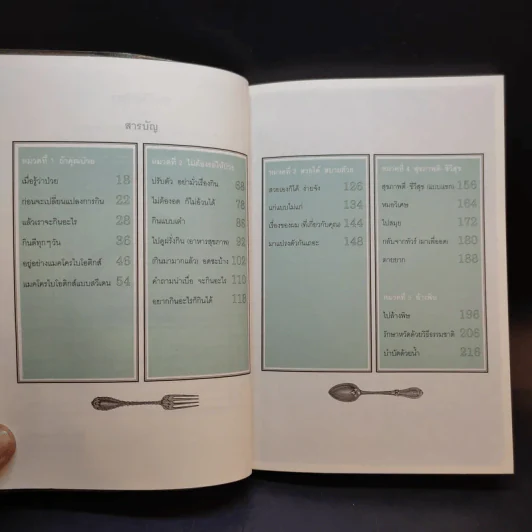 สารบัญ
หมวดที่ 1
เมื่อรู้ว่าป่วย 18
ก่อนจะเปลี่ยนแปลงการกิน 22
แล้วเราจะกินอะไร 28
กินดีทุกๆวัน 36
อยู่อย่างแมคโครไบโอติกส์ 46
แมคโครไบโอติกส์แบบสวีเดน 54
หมวดที่ 2
ปรับตัว อย่ามัวเรื่องกิน 68
ไม่ต้องอด ก็ไม่อ้วนได้ 78
กินแบบเต๋า 86
ไปดูฝรั่งกิน (อาหารสุขภาพ) 92
กินมามากแล้ว อดซะบ้าง 102
คำถามน่าเบื่อ จะกินอะไร 110
อยากกินอะไรก็กินได้ 118
หมวดที่ 3 สวยได้
สวยเองก็ได้ ง่ายจัง 126
แก่แบบไม่แก่ 134
เรื่องของผม (ที่เกี่ยวกับคุณ) 144
มาแปรงตัวกันเถอะ 148
หมวดที่ 4 สุขภาพดี ชีวีสุข
สุขภาพดี ชีวีสุข (แบบแขก) 156
หมอวิเศษ 164
ไปสมุย 172
กลับจากทัวร์ (มาเพื่ออด) 180
ตายยาก 188
หมวดที่ 5
ไปล้างพิษ 196
รักษาหวัดด้วยวิธีธรรมชาติ 206
บำบัดด้วยน้ำ 216